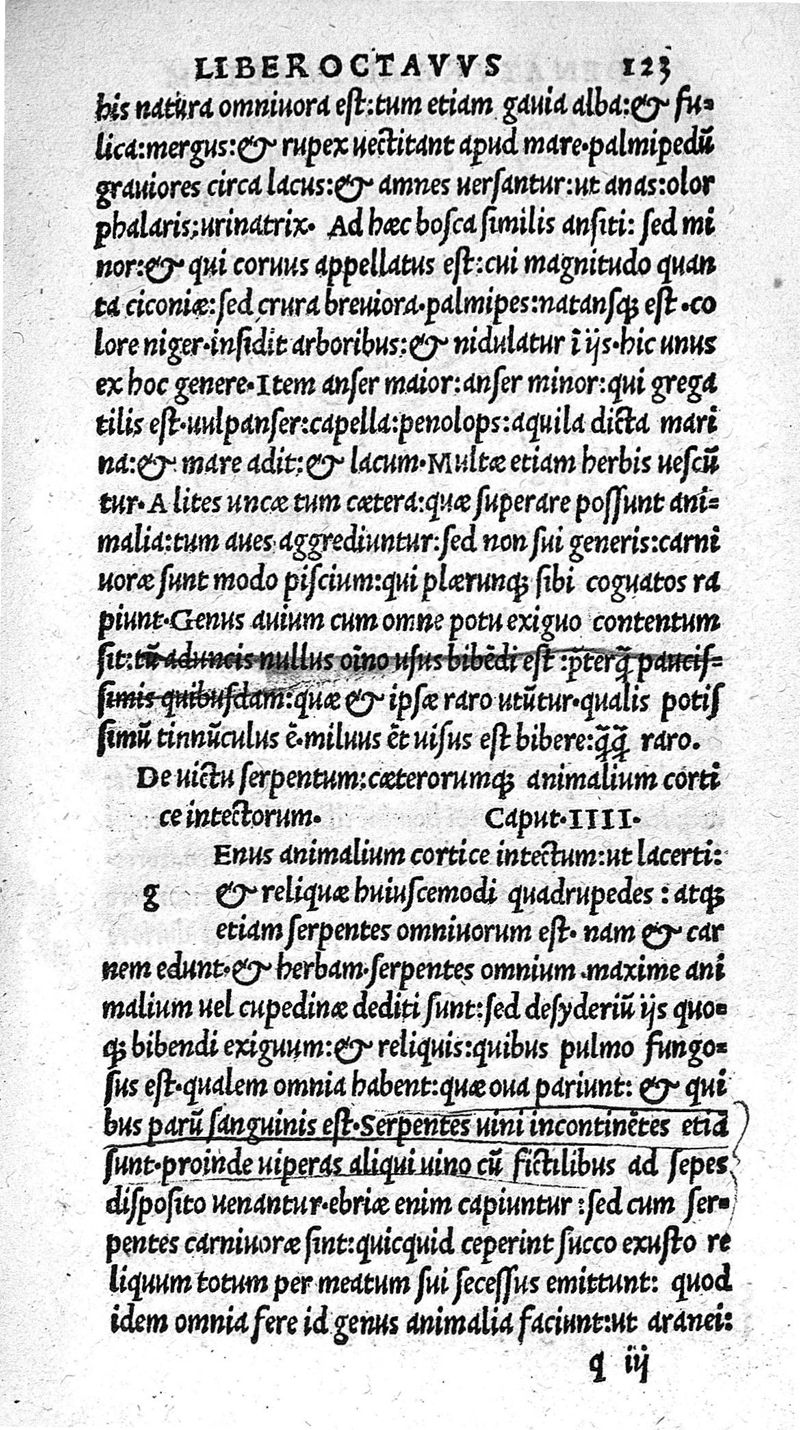 LIBER OCTAVVS 123
his natura omniuora est:tum etiam gauia alba:& fu=
lica:mergus:& rupex uectitant apud mare.palmipedũ
grauiores circa lacus:& amnes uersantur:ut anas:olor
phalaris:urinatrix. Ad hæc bosca similis ansiti: sed mi
nor:& qui coruus appellatus est:cui magnitudo quan
ta ciconiæ:sed crura breuiora.palmipes:natansq; est .co
lore niger.insidit arboribus:& nidulatur ĩ ijs.hic unus
ex hoc genere.Item anser maior:anser minor:qui grega
tilis est.uulpanser:capella:penolops:aquila dicta mari
na:& mare adit:& lacum.Multæ etiam herbis uescũ
tur.A lites uncæ tum cætera:quæ superare possunt ani=
malia:tum aues aggrediuntur:sed non sui generis:carni
uoræ sunt modo piscium:qui plærunq; sibi coguatos ra
piunt.Genus auium cum omne potu exiguo contentum
sit:tũ aduncis nullus oĩno usus bibẽdi est :p̃terq̃ paucis=
simis quibusdam:quæ & ipsæ raro utũtur.qualis potis
simũ tinnũculus ẽ.miluus ẽt uisus est bibere:q̃q̃ raro.
De uictu serpentum:cæterorumq; animalium corti
ce intectorum. Caput.IIII.
Enus animalium cortice intectum:ut lacerti:
g & reliquæ huiuscemodi quadrupedes : atq;
etiam serpentes omniuorum est. nam & car
nem edunt.& herbam.serpentes omnium .maxime ani
malium uel cupedinæ dediti sunt:sed desyderiũ ijs quo=
q; bibendi exiguum:& reliquis:quibus pulmo fungo=
sus est.qualem omnia habent:quæ oua pariunt: & qui
bus parũ sanguinis est.Serpentes uini incontinẽtes etiã
sunt.proinde uiperas aliqui uino cũ fictilibus ad sepes
disposito uenantur.ebriæ enim capiuntur :sed cum ser=
pentes carniuoræ sint:quicquid ceperint succo exusto re
liquum totum per meatum sui secessus emittunt: quod
idem omnia fere id genus animalia faciunt:ut aranei:
q iij